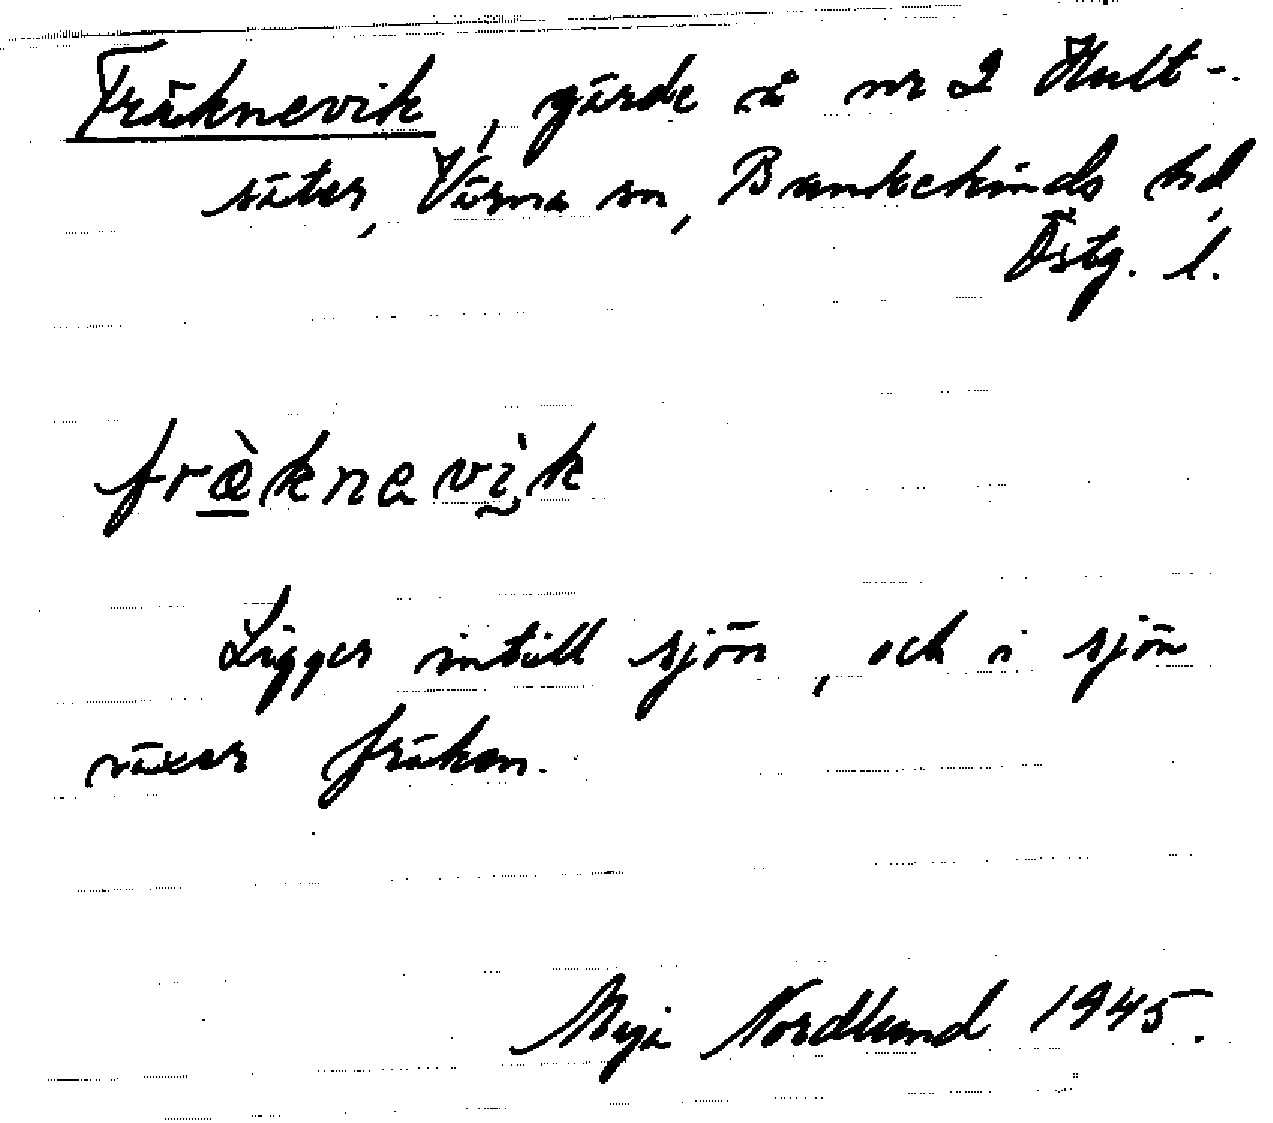 Fräknevik, gärde å nr 2 Hult-
säter, Värna sn, Bankekinds hd,
Östg. l.
fræ̀knavìk
Ligger intill sjön, och i sjön
växer fräken.
Nordlund 1945.